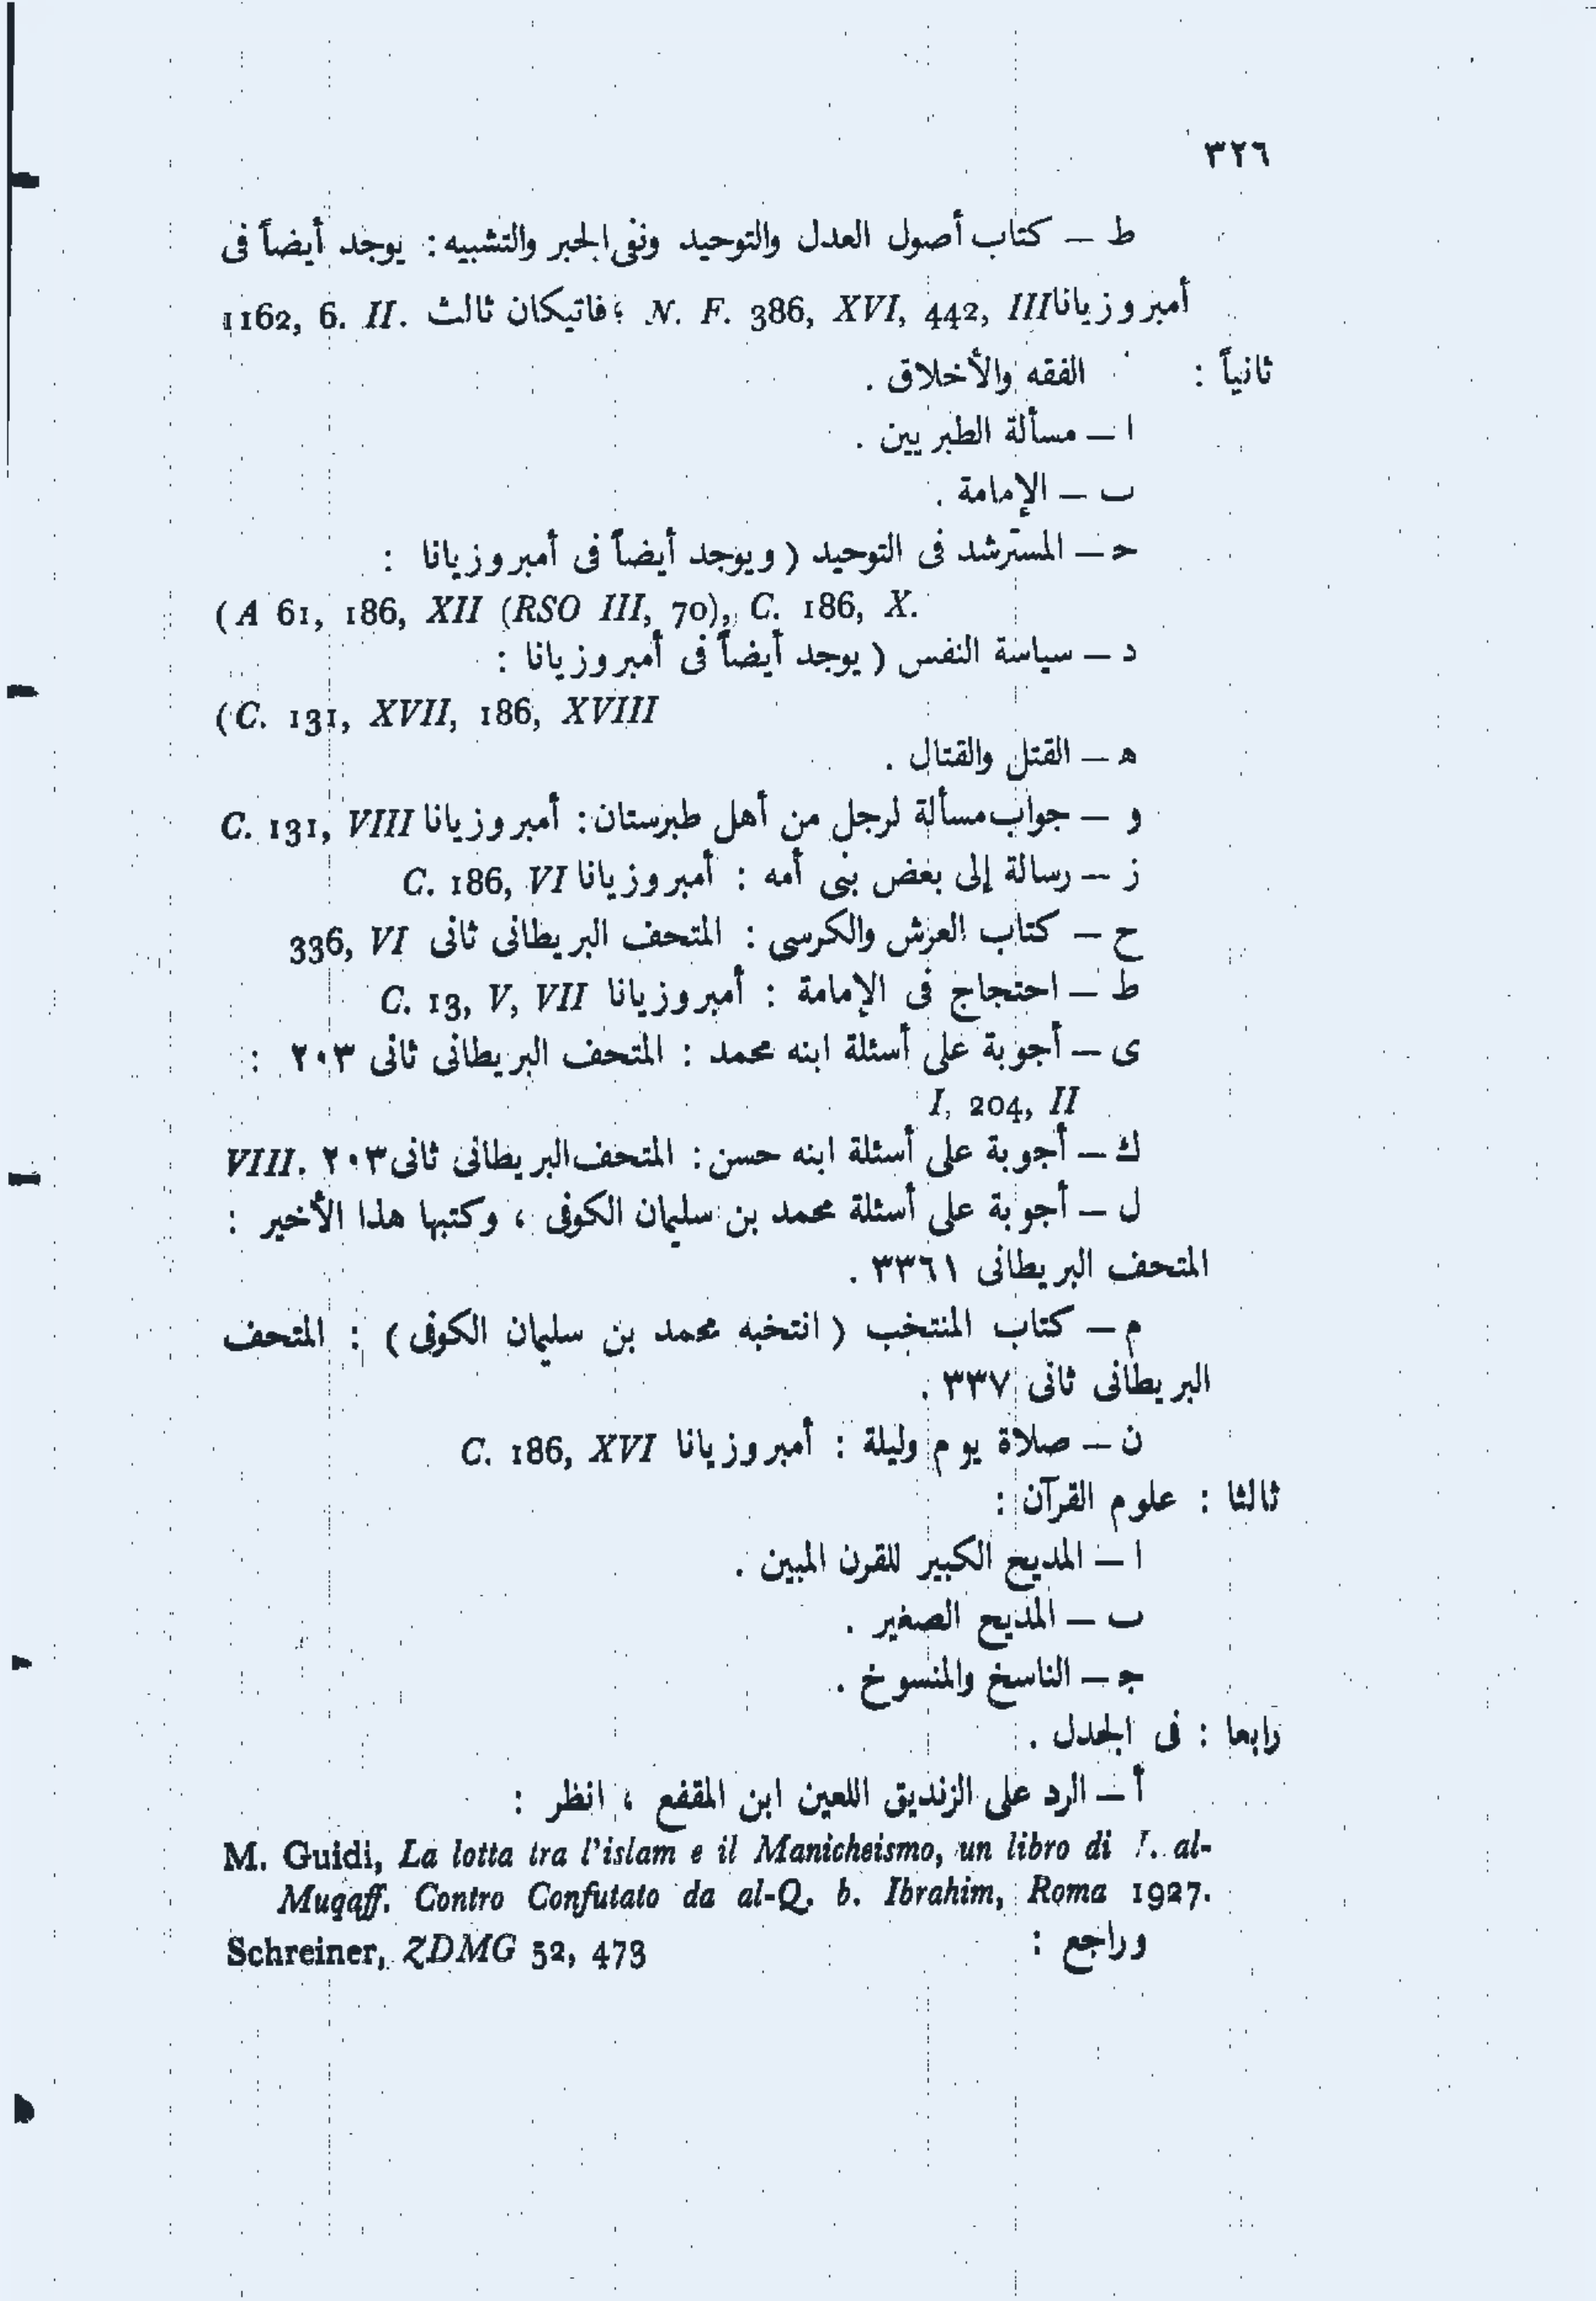 ٣٢٦
ط – كتاب أصول العدل والتوحيد ونفى الجبر والتشبيه : يوجد أيضاً فى
أمبروزيانا N. F. 386, XVI, 442, III ؛ فاتيكان ثالث 1162, 6. II.
ثانياً : الفقه والأخلاق .
ا – مسألة الطبريين .
ب – الإمامة .
ح – المسترشد فى التوحيد ( ويوجد أيضاً فى أمبروزيانا :
(A 61, 186, XII (RSO III, 70), C. 186, X.
د – سياسة النفس ( يوجد أيضاً فى أمبروزيانا :
(C. 131, XVII, 186, XVIII
ه – القتل والقتال .
و – جواب مسألة لرجل من أهل طبرستان : أمبروزيانا C. 131, VIII
ز – رسالة إلى بعض بنى أمه : أمبروزيانا C. 186, VI
ح – كتاب العرش والكرسى : المتحف البريطانى ثانى 336, VI
ط – احتجاج فى الإمامة : أمبروزيانا C. 13, V, VII
ى – أجوبة على أسئلة ابنه محمد : المتحف البريطانى ثانى ٢٠٣ :
I, 204, II
ك – أجوبة على أسئلة ابنه حسن : المتحف البريطانى ثانى ٢٠٣ VIII.
ل – أجوبة على أسئلة محمد بن سليمان الكوفى ، وكتبها هذا الأخير :
المتحف البريطانى ٣٣٦١ .
م – كتاب المنتخب ( انتخبه محمد بن سليمان الكوفى ) : المتحف
البريطانى ثانى ٣٣٧ .
ن – صلاة يوم وليلة : أمبروزيانا C. 186, XVI
ثالثا : علوم القرآن :
ا – المديح الكبير للقرن المبين .
ب – المديح الصغير .
ج – الناسخ والمنسوخ .
رابعا : فى الجدل .
أ – الرد على الزنديق اللعين ابن المقفع ، انظر :
M. Guidi, La lotta tra l'islam e il Manicheismo, un libro di I. al-
Muqaff. Contro Confutato da al-Q. b. Ibrahim, Roma 1927.
وراجع : Schreiner, ZDMG 52, 473